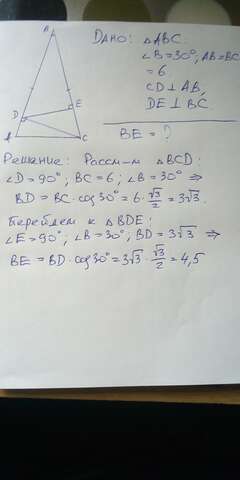 B
D
E
A
C
Дано: △ABC.
∠B=30°, AB=BC
=6
CD⊥AB,
DE⊥BC.
BE = ?
Решение: Рассм-м △BCD:
∠D=90°; BC=6; ∠B=30° ⇒
BD = BC·cos30° = 6·√3/2 = 3√3.
Перейдем к △BDE:
∠E=90°; ∠B=30°; BD=3√3 ⇒
BE = BD·cos30° = 3√3·√3/2 = 4,5